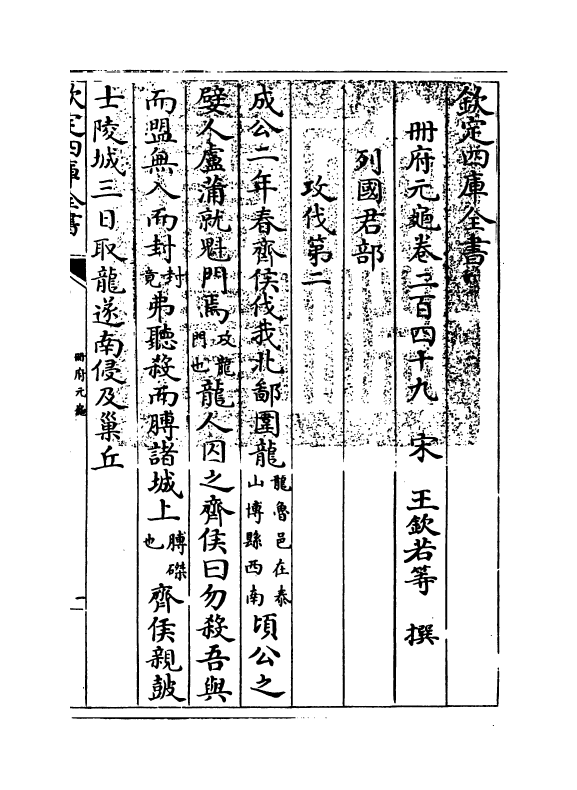 欽定四庫全書
冊府元龜卷二百四十九　宋　王欽若等　撰
列國君部
攻伐第二
成公二年春齊侯伐我北鄙圍龍龍魯邑在泰山博縣西南頃公之
嬖人盧蒲就魁門焉攻龍門也龍人囚之齊侯曰勿殺吾與
而盟無入而封封竟弗聽殺而膊諸城上膊磔也齊侯親鼓
士陵城三日取龍遂南侵及巢丘
欽定四庫全書
冊府元龜